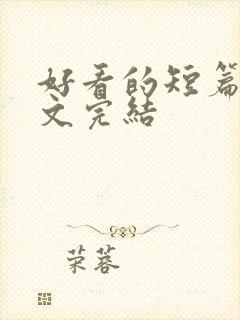 好看的短篇
文完结
荣蓉